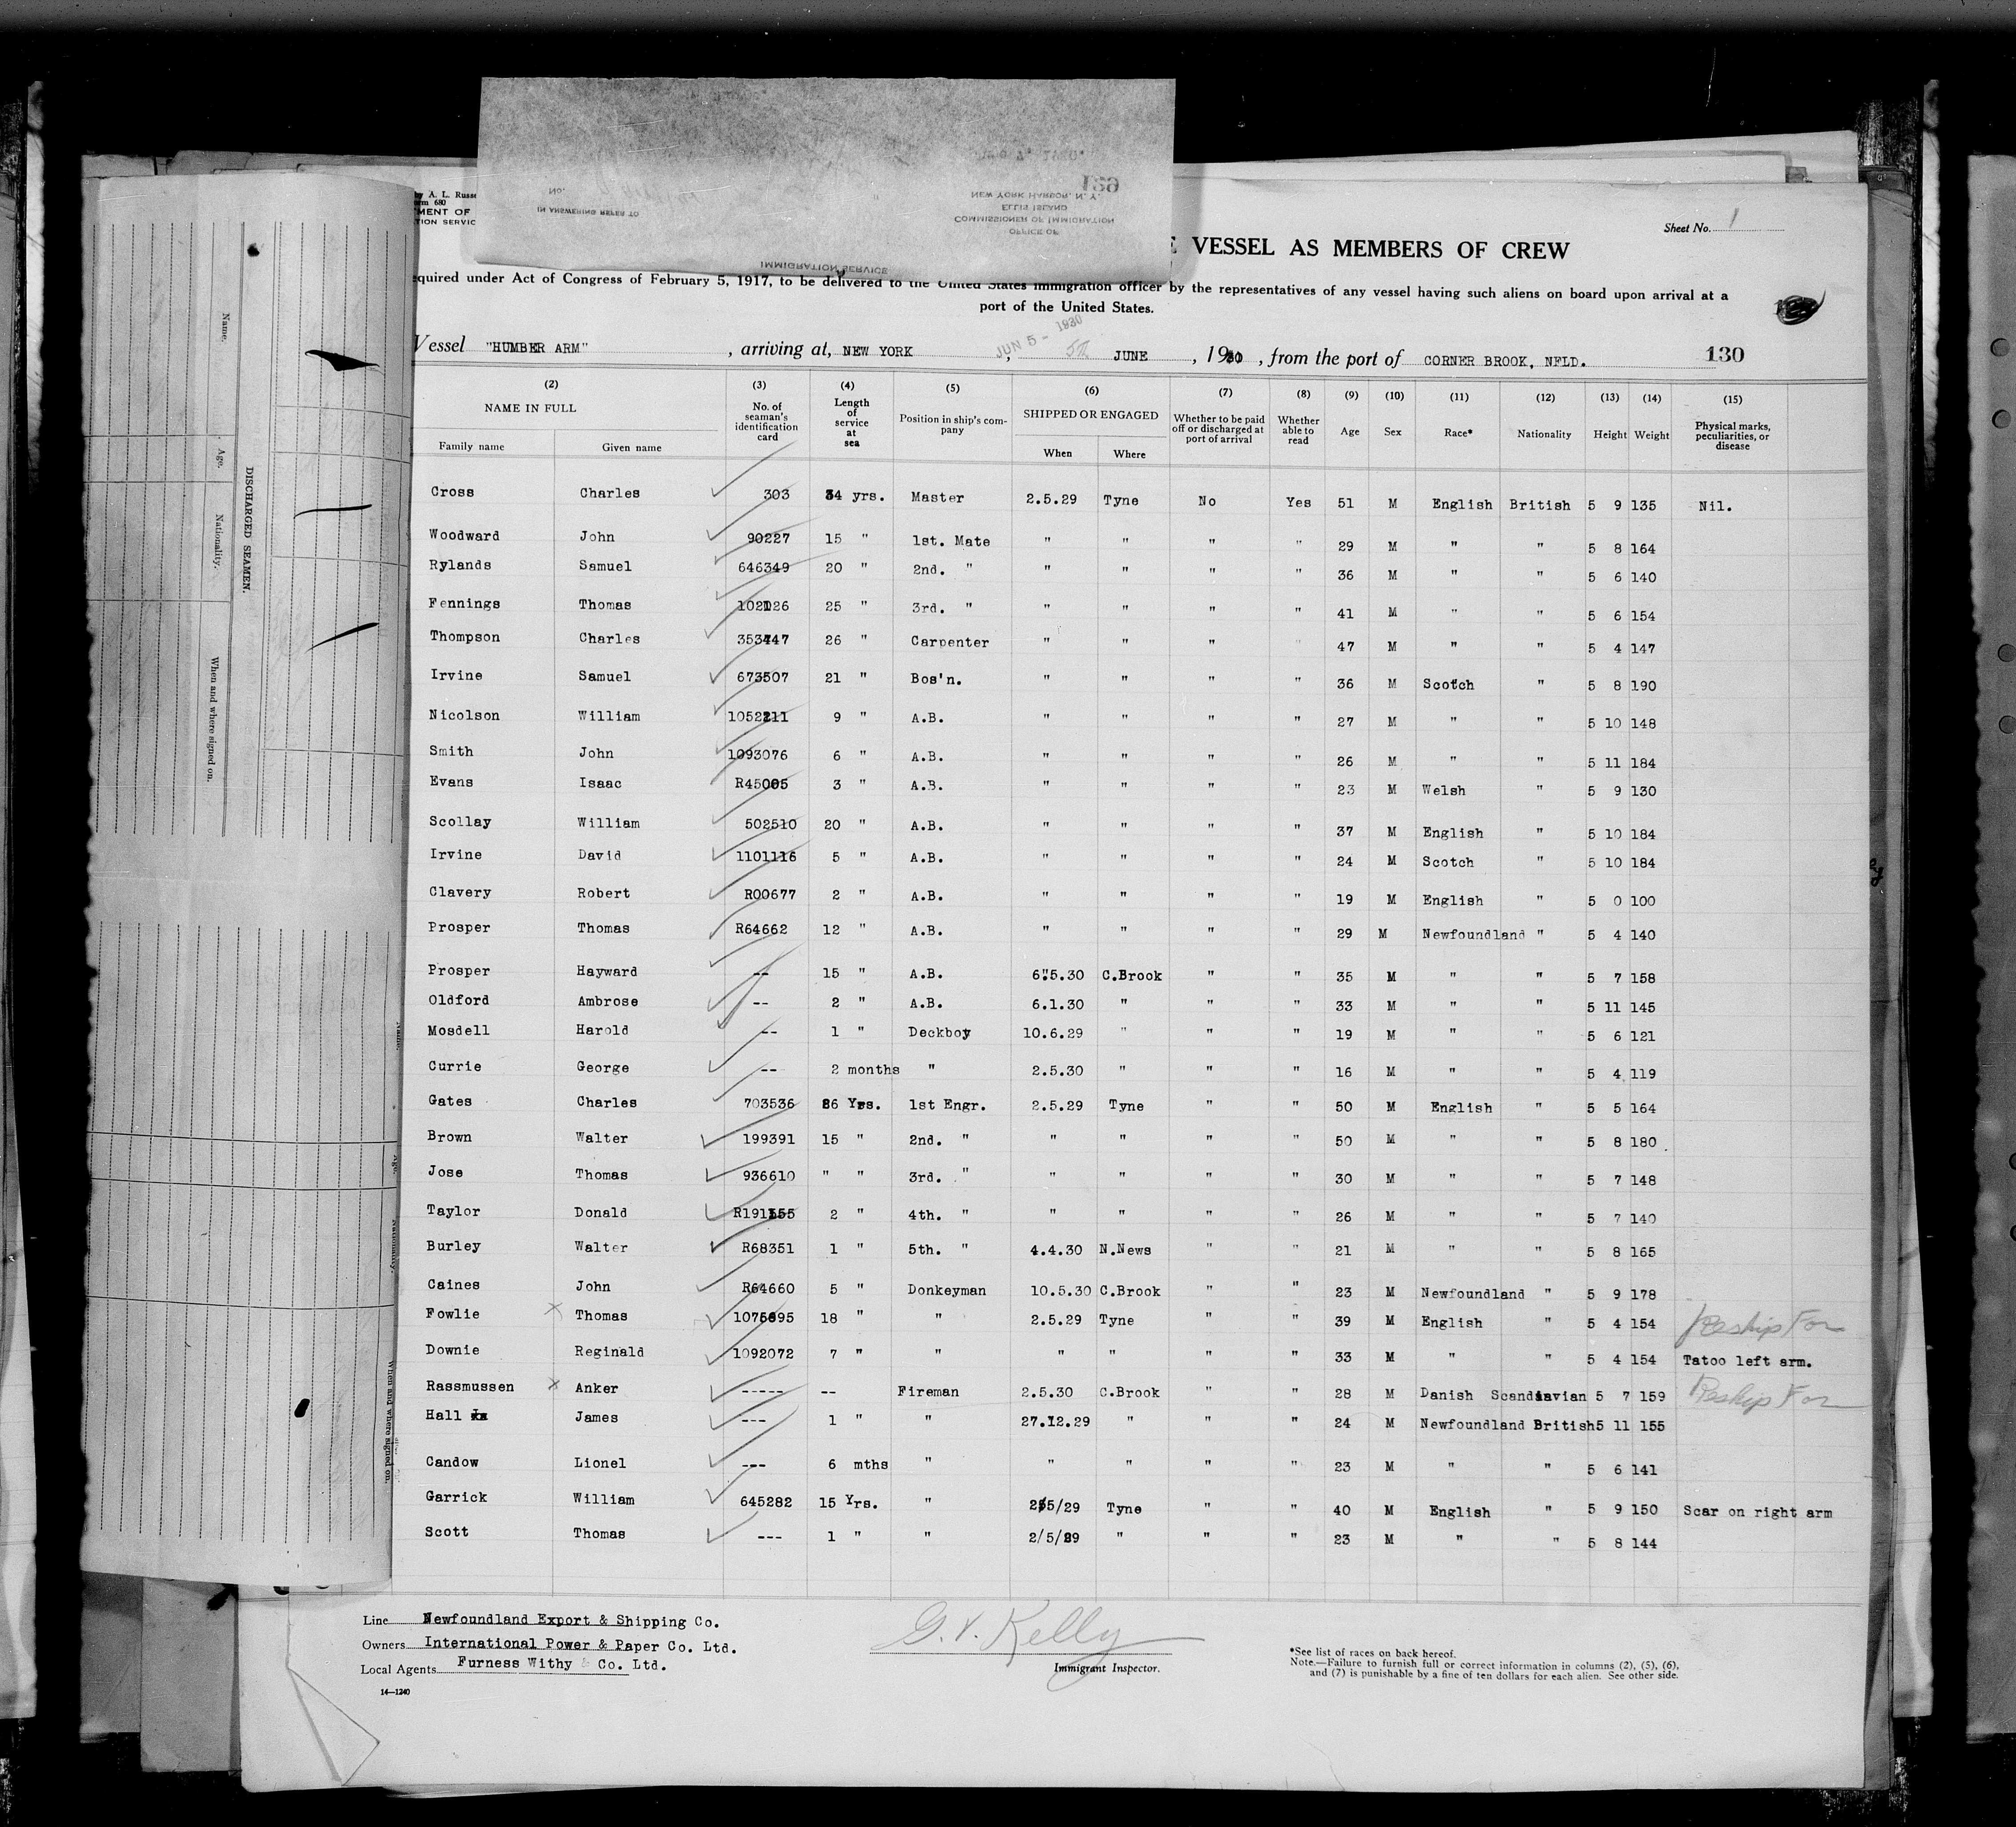 No.
IN ANSWERING REFER TO
NEW YORK HARBOR, N. Y.
ELLIS ISLAND
COMMISSIONER OF IMMIGRATION
OFFICE OF
IMMIGRATION SERVICE
Sheet No. 1
VESSEL AS MEMBERS OF CREW
equired under Act of Congress of February 5, 1917, to be delivered to the United States immigration officer by the representatives of any vessel having such aliens on board upon arrival at a
port of the United States.
JUN 5 - 1930
Vessel "HUMBER ARM" , arriving at, NEW YORK , 5th JUNE , 1930 , from the port of CORNER BROOK, NFLD. 130
(2) (3) (4) (5) (6) (7) (8) (9) (10) (11) (12) (13) (14) (15)
NAME IN FULL No. of seaman's identification card Length of service at sea Position in ship's company SHIPPED OR ENGAGED Whether to be paid off or discharged at port of arrival Whether able to read Age Sex Race* Nationality Height Weight Physical marks, peculiarities, or disease
Family name Given name When Where
Cross Charles 303 34 yrs. Master 2.5.29 Tyne No Yes 51 M English British 5 9 135 Nil.
Woodward John 90227 15 " 1st. Mate " " " " 29 M " " 5 8 164
Rylands Samuel 646349 20 " 2nd. " " " " " 36 M " " 5 6 140
Fennings Thomas 102126 25 " 3rd. " " " " " 41 M " " 5 6 154
Thompson Charles 353447 26 " Carpenter " " " " 47 M " " 5 4 147
Irvine Samuel 673507 21 " Bos'n. " " " " 36 M Scotch " 5 8 190
Nicolson William 1052211 9 " A.B. " " " " 27 M " " 5 10 148
Smith John 1093076 6 " A.B. " " " " 26 M " " 5 11 184
Evans Isaac R45005 3 " A.B. " " " " 23 M Welsh " 5 9 130
Scollay William 502510 20 " A.B. " " " " 37 M English " 5 10 184
Irvine David 1101116 5 " A.B. " " " " 24 M Scotch " 5 10 184
Clavery Robert R00677 2 " A.B. " " " " 19 M English " 5 0 100
Prosper Thomas R64662 12 " A.B. " " " " 29 M Newfoundland " 5 4 140
Prosper Hayward -- 15 " A.B. 6.5.30 C.Brook " " 35 M " " 5 7 158
Oldford Ambrose -- 2 " A.B. 6.1.30 " " " 33 M " " 5 11 145
Mosdell Harold -- 1 " Deckboy 10.6.29 " " " 19 M " " 5 6 121
Currie George -- 2 months " 2.5.30 " " " 16 M " " 5 4 119
Gates Charles 703536 26 Yrs. 1st Engr. 2.5.29 Tyne " " 50 M English " 5 5 164
Brown Walter 199391 15 " 2nd. " " " " " 50 M " " 5 8 180
Jose Thomas 936610 " " 3rd. " " " " " 30 M " " 5 7 148
Taylor Donald R191155 2 " 4th. " " " " " 26 M " " 5 7 140
Burley Walter R68351 1 " 5th. " 4.4.30 N.News " " 21 M " " 5 8 165
Caines John R64660 5 " Donkeyman 10.5.30 C.Brook " " 23 M Newfoundland " 5 9 178
Fowlie x Thomas 1075695 18 " " 2.5.29 Tyne " " 39 M English " 5 4 154 Reship For
Downie Reginald 1092072 7 " " " " " " 33 M " " 5 4 154 Tatoo left arm.
Rassmussen x Anker ----- -- Fireman 2.5.30 C.Brook " " 28 M Danish Scandinavian 5 7 159 Reship For
Hall James --- 1 " " 27.12.29 " " " 24 M Newfoundland British 5 11 155
Candow Lionel --- 6 mths " " " " " 23 M " " 5 6 141
Garrick William 645282 15 Yrs. " 2/5/29 Tyne " " 40 M English " 5 9 150 Scar on right arm
Scott Thomas --- 1 " " 2/5/29 " " " 23 M " " 5 8 144
Line Newfoundland Export & Shipping Co.
Owners International Power & Paper Co. Ltd.
Local Agents Furness Withy & Co. Ltd.
14—1240
G. V. Kelly
Immigrant Inspector.
*See list of races on back hereof.
Note.—Failure to furnish full or correct information in columns (2), (5), (6),
and (7) is punishable by a fine of ten dollars for each alien. See other side.
DISCHARGED SEAMEN.
Name.
Age.
Nationality.
When and where signed on.